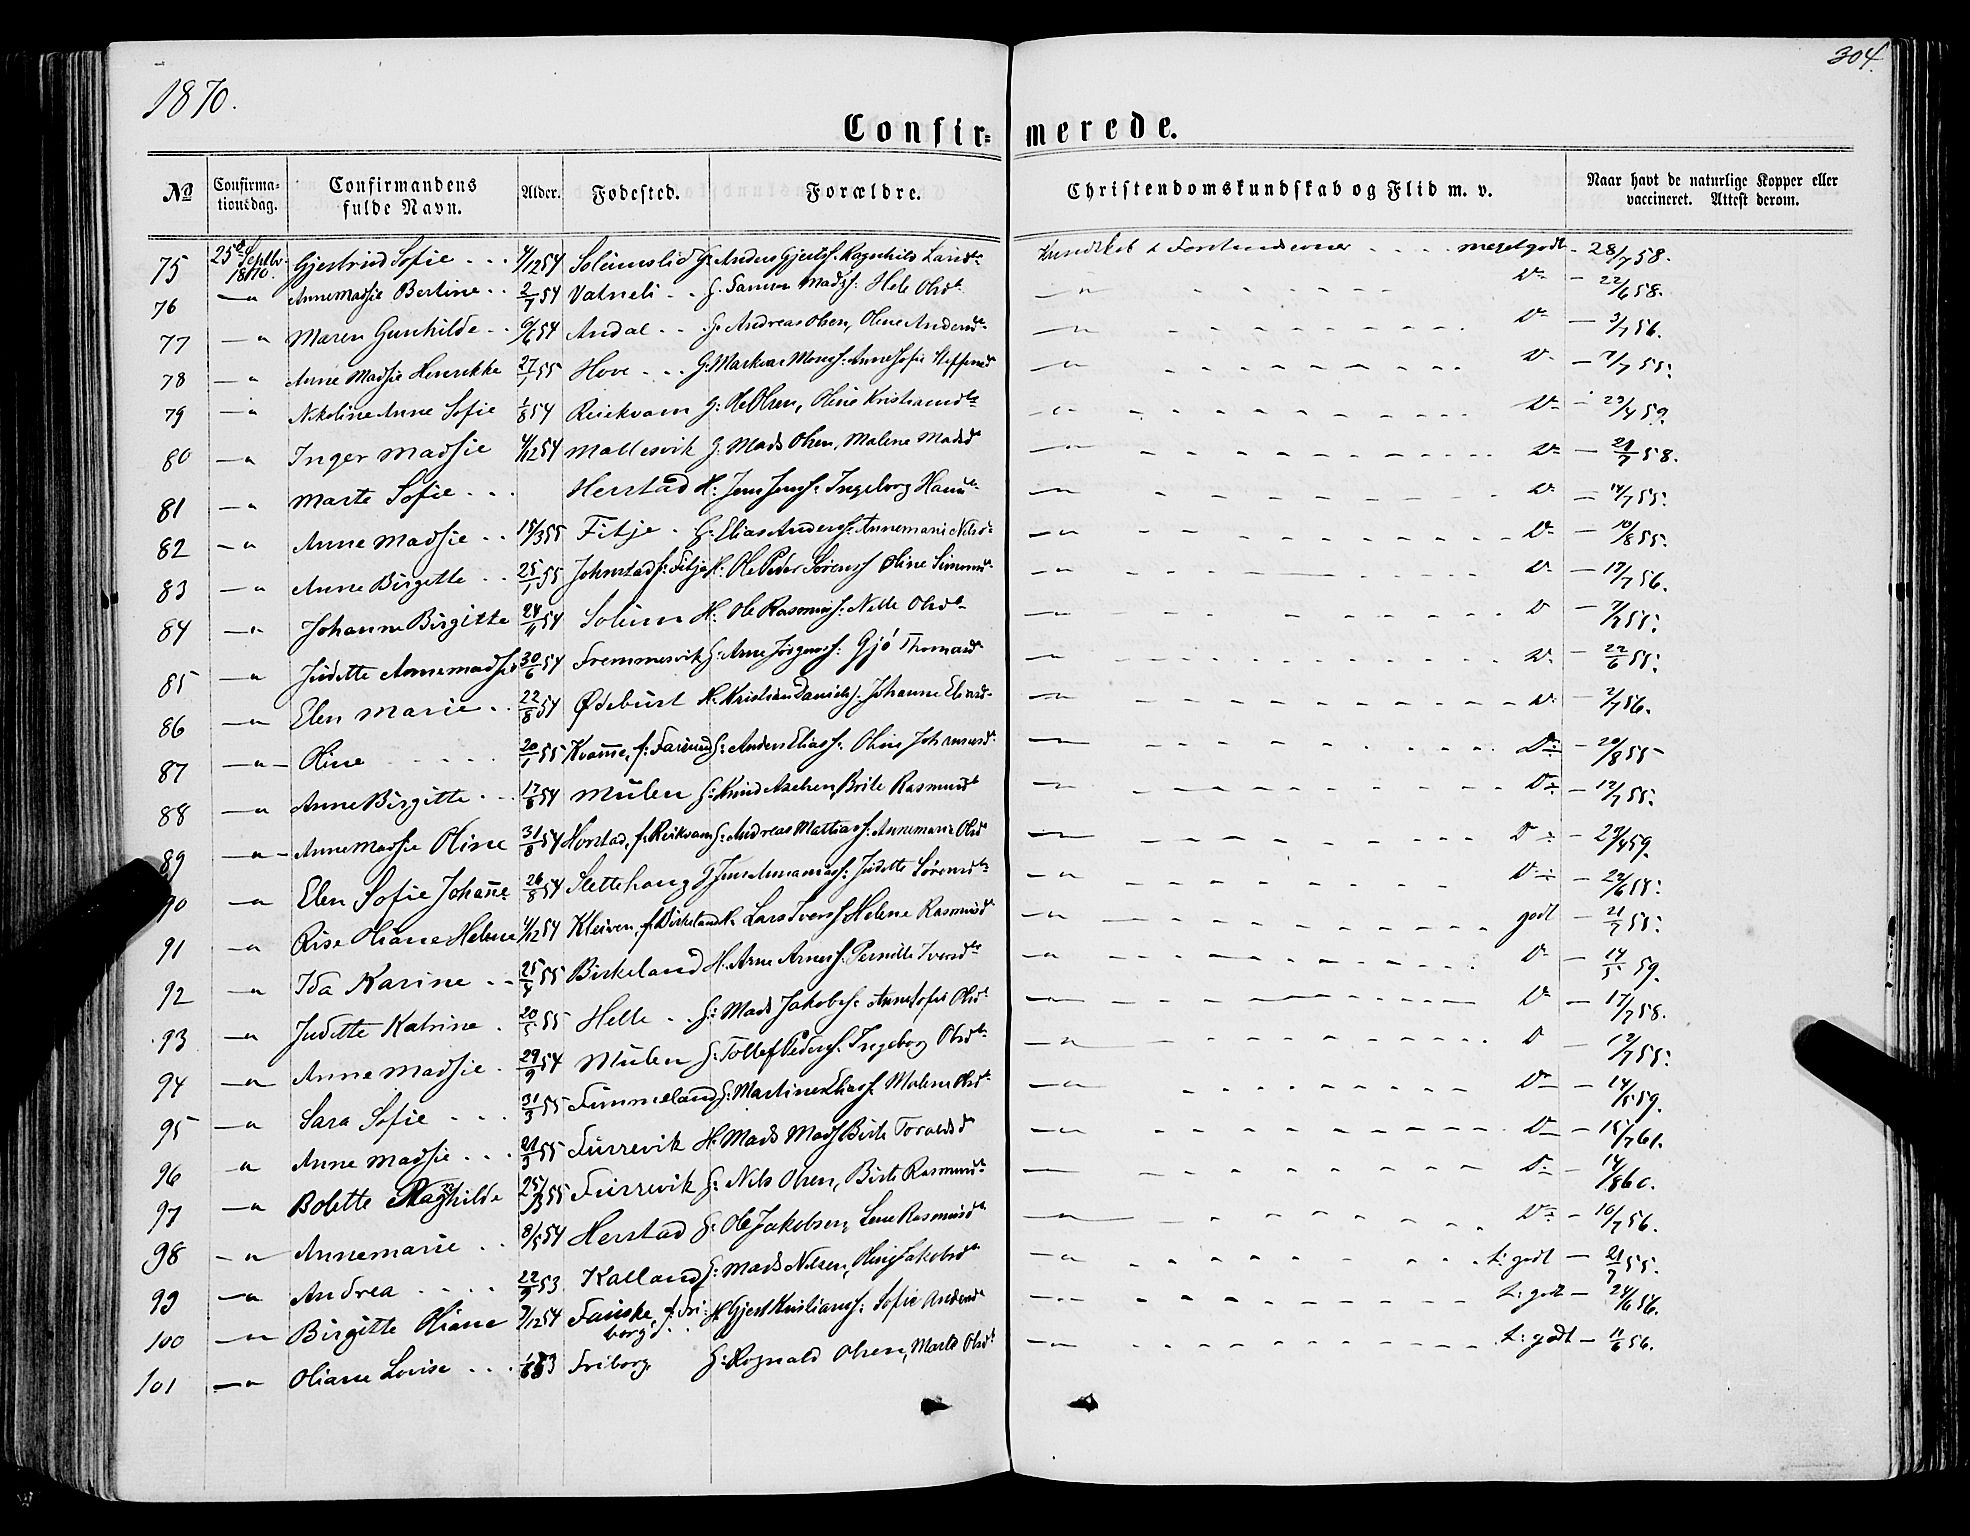 304.
1870.
Confir= merede.
No Confirma-tionsdag. Confirmandens fulde Navn. Alder. Fødested. Forældre. Christendomskundskab og Flid m. v. Naar havt de naturlige Kopper eller vaccineret. Attest derom.
75 25de Septbr 1870. Gjertrud Sofie 4/12 54 G: Anders Gjerts. Ragnhild Kundskab & meget godt 28/7 58.
76 —"— Annemadsie Bertine 2/7 54 Vatneli G. Mads: —"— Do 22/6 58.
77 —"— Maren Gunhilde 54 Andal G. Andreas Olsen, Oline Andersd —"— Do 3/7 56.
78 —"— Anne Madsie Henrikke 27/1 55 Hove G: Markus Mons: Anne Sofie —"— Do 7/7 55.
79 —"— Nikoline Anne Sofie 1/8 54 Reiekvam G: Ole Olsen, Oline Kristiansd —"— Do 29/4 59.
80 —"— Inger Madsie 4/12 54 Mallesvik G: Mads Olsen, Malene Madsd —"— Do 21/7 58.
81 —"— Marte Sofie Herstad H: Jens Jens: Ingeborg Hansd —"— Do 14/7 55.
82 —"— Anne Madsie 15/3 55 Fitje G: Elias Anders: Annemarie Nilsd —"— Do 10/8 55.
83 —"— Anne Birgitte 25/1 55 f: Fitje H: Ole Peder Sørens: Oline Simonsd —"— Do 17/7 56.
84 —"— Johanne Birgitte 24/11 54 Soleim H: Ole Rasmus: Nille Olsd —"— Do 7/7 55.
85 —"— Judette Annemadsie 30/6 54 Fremmersvik G: Arne Jørgens: Gjø Thomasd —"— Do 22/6 55.
86 —"— Elen Marie 22/8 54 Ødebust H: Kristian Daniels: Johanne Eliasd —"— Do 2/7 56.
87 —"— Oline 20/1 55 Kvamme, f: G: Anders Elias: Oline Johannesd —"— Do÷ 20/8 55
88 —"— Anne Birgitte 17/8 54 Mulen G: Knud Brite Rasmusd —"— Do÷ 12/7 55.
89 —"— Annemadsie Oline 31/8 54 Herstad, f. Reikvam G: Andreas Mathias: Annemarie Olsd —"— Do÷ 29/4 59.
90 —"— Elen Sofie Johanne 26/8 54 Slettehaug G Jens Ananias: Judette Sørensd —"— Do÷ 22/6 58.
91 —"— Oliane Helene 4/12 54 Kleiven, f. Birkeland H. Lars Ivers: Helene Rasmusd —"— godt 21/7 55.
92 —"— Ida Karine 25/4 55 Birkeland H. Arne Arnes: Pernille Iversd —"— Do 14/5 59.
93 —"— Judette Katrine 20/5 55 Helle G: Mads Jakobs: Anne Sofie Olsd —"— Do 17/7 58.
94 —"— Anne Madsie 29/9 54 Mulen G: Tollef Peders: Ingeborg Olsd —"— Do 12/7 55.
95 —"— Sara Sofie 31/3 55 Timmeland G: Martinus Elias: Malene Olsd —"— Do 14/5 59.
96 —"— Anne Madsie 21/3 55 Furrevik H: Mads Mads: Birte Toraldsd —"— Do 15/7 61.
97 —"— Bolette Raghilde 25/3 55 Furrevik G: Nils Olsen, Birte Rasmusd —"— Do 14/8 60.
98 —"— Annemarie 8/5 54 Herstad G: Ole Jakobsen, Lene Rasmusd —"— Do÷ 10/7 56.
99 —"— Andrea 22/9 53 Kalland G: Mads Nilsen, Oline Jakobsd —"— t: godt 21/7 55.
100 —"— Birgitte Oliane 7/12 54 Fauske, f. Friborg H Gjert Kristians: Sofie Andersd —"— t: godt 24/6 56.
101 —"— Oliane Lovise 53 Friborg G: Rognald Olsen, Marte Olsd —"— t: godt 11/6 56.